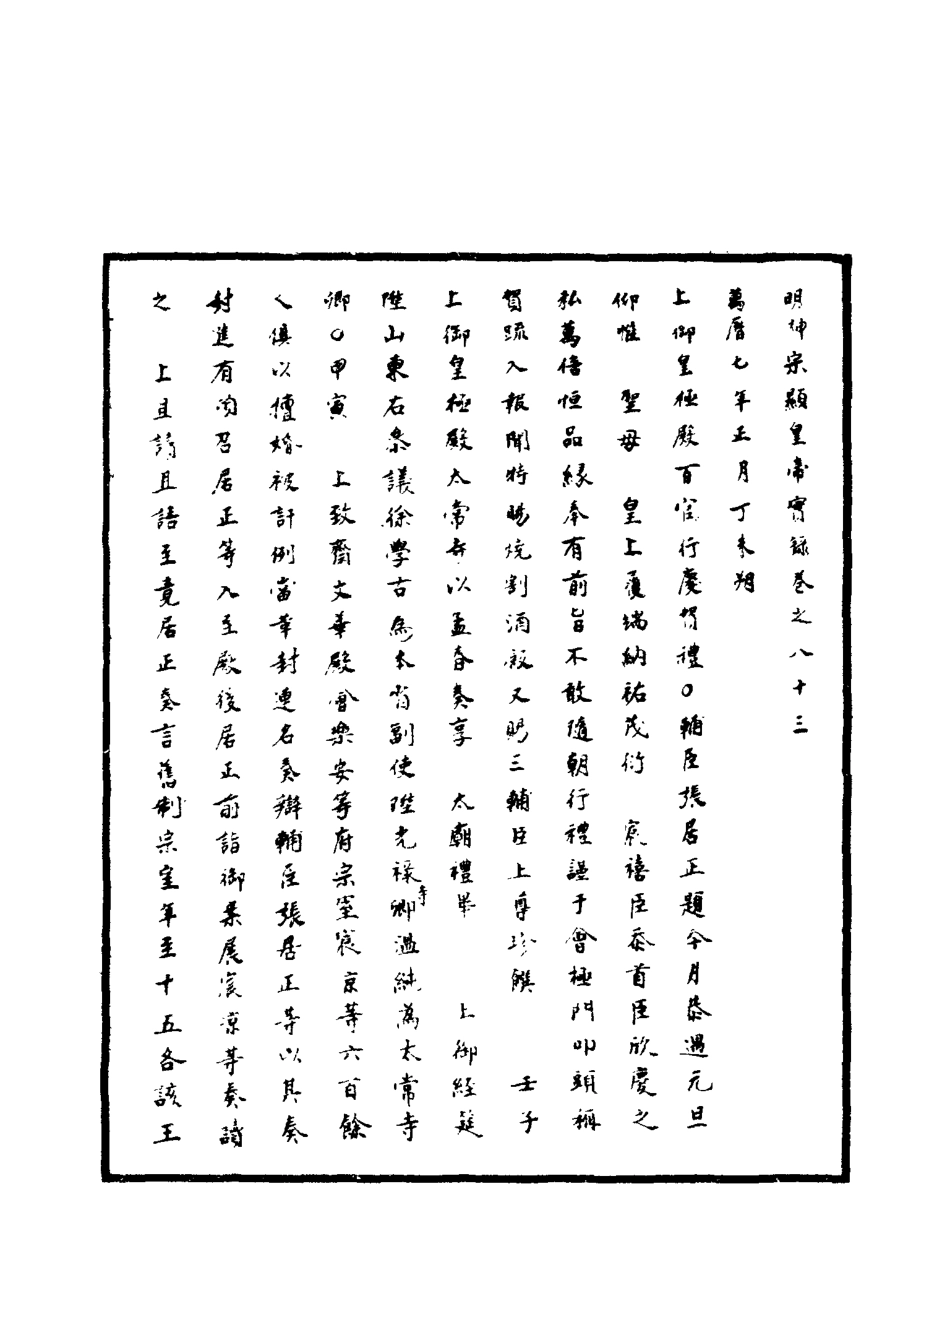 明神宗顯皇帝實錄卷之八十三
萬曆七年正月丁未朔
上御皇極殿百官行慶賀禮○輔臣張居正題今月恭遇元旦
仰惟 聖母 皇上履端納祐茂衍 宸禧臣忝首臣欣慶之
私萬倍恒品緣奉有前旨不敢隨朝行禮謹于會極門叩頭稱
賀疏入報聞特賜燒割酒飯又賜三輔臣上尊珍饌 壬子
上御皇極殿太常寺以孟春奏享 太廟禮畢 上御經筵
陞山東右叅議徐學古為本省副使陞光祿寺卿溫純為太常寺
卿○甲寅 上致齋文華殿會樂安等府宗室宸京等六百餘
人俱以擅婚被訐例當革封連名奏辯輔臣張居正等以其奏
封進有間召居正等入至殿後居正前詣御案展宸凉等奏讀
之 上且讀且語至竟居正奏言舊制宗室年至十五各該王